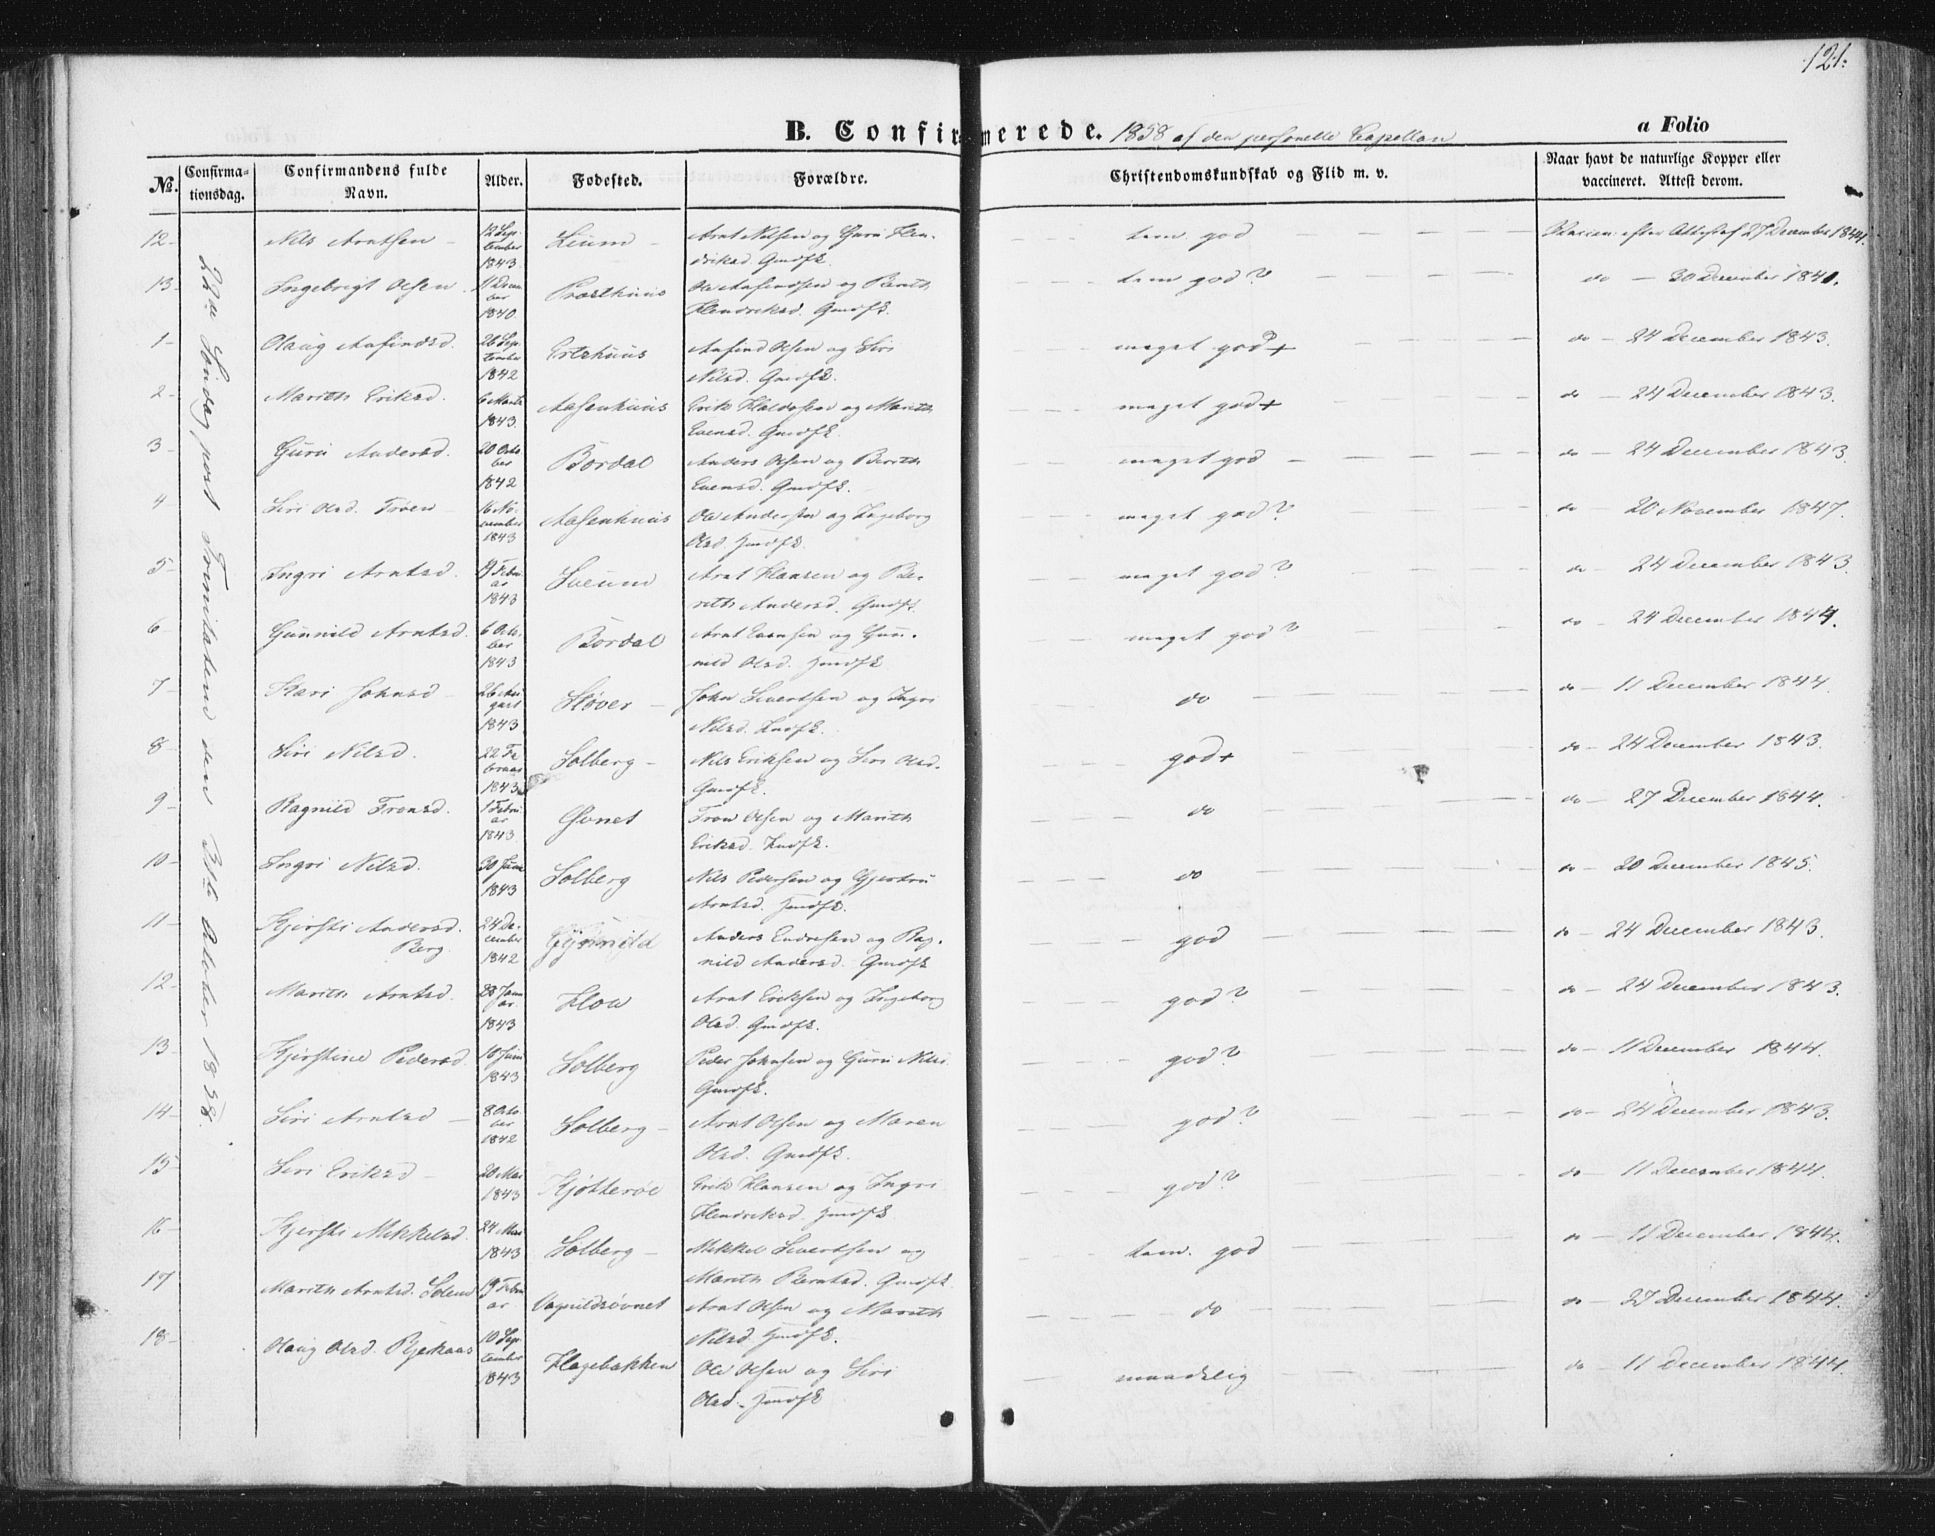 121.
B. Confirmerede. 1858 af den personelle Capellan
a Folio
No.
Confirmationsdag.
Confirmandens fulde Navn.
Alder.
Fødested.
Forældre.
Christendomskundskab og Flid m. v.
Naar havt de naturlige Kopper eller vaccineret. Attest derom.
22de Søndag post Trinitatem den 31te October 1858.
12 Nils Arntsen 12 September 1843 Arnt Nilsen og Guru Hendriksd. Gmdfk. tem. god Vaccin. efter Attest af 27 December 1844.
13 Ingebrigt Olsen 11 December 1840 Præsthuus Ole Aafindsen og Berith Hendriksd. Gmdfk. tem god? do 30 December 1841.
1 Olaug Aafindsd. 26 September 1842 Ertshuus Aafind Olsen og Siri Nilsd. Gmdfk. meget god+ do 24 December 1843.
2 Marith Eriksd. 6 Marts 1843 Aasenhuus Erik Haldosen og Marith Evensd. Gmdfk. meget god+ do 24 December 1843.
3 Guru Andersd. 20 October 1842 Bordal Anders Olsen og Berith Evensd. Gmdfk. meget god do 24 December 1843.
4 Siri Olsd. Trøen 16 November 1843 Aasenhuus Ole Andersen og Ingeborg Olsd. Hmdfk. meget god? do 20 November 1847.
5 Ingri Arntsd. 19 Februar 1843 Sveum Arnt Hansen og Berith Andersd. Gmdfk. meget god? do 24 December 1843
6 Gunnild Arntsd. 6 October 1843 Bordal Arnt Evensen og Gunnild Olsd. Hmdfk. meget god? do 24 December 1844.
7 Kari Johnsd 26 August 1843 Støver John Sivertsen og Ingri Nilsd. do do 11 December 1844
8 Siri Nilsd. 22 Februar 1843 Solberg Nils Eriksen og Siri Olsd. Gmdfk. god+ do 24 December 1843.
9 Ragnild Tronsd. 1 Februar 1843 Tron Olsen og Marith Eriksd. do do 27 December 1844.
10 Ingri Nilsd. 30 Solberg Nils Pedersen og Gjertru Arntsd. Hmdfk. do do 20 December 1845.
11 Kjersti Andersd. Berg 24 December 1842 Gynnild Anders Endresen og Ragnild Andersd. Gmdfk god do 24 December 1843.
12 Marith Arntsd. 28 Januar 1843 Arnt Eriksen og Ingeborg Olsd. Gmdfk. god? do 24 December 1843.
13 Kjerstine Pedersd. 16 Juni 1843 Solberg Peder Johnsen og Guru Nilsd. Gmdfk. god? do 11 December 1844.
14 Siri Arntsd 8 October 1842 Solberg Arnt Olsen og Maren Olsd. Gmdfk. god? do 24 December 1843.
15 Siri Eriksd 20 Mai 1843 Kjøtterøe Erik Hansen og Ingri Hendriksd. Hmdfk. god? do 11 December 1844.
16 Kjersti Mikkelsd. 24 Mai 1843 Solberg Mikkel Sivertsen og Marith Berntsd. Gmdfk. tem. god do 11 December 1844.
17 Marith Arntsd. 19 Februar Vagnildsøvnet Arnt Olsen og Marith Nilsd. Hmdfk. do do 27 December 1844.
18 Olaug Olsd. Bjerkaas 10 September 1843 Hagebakken Ole Olsen og Siri Olsd. Hmdfk maadelig do 11 December 1844.